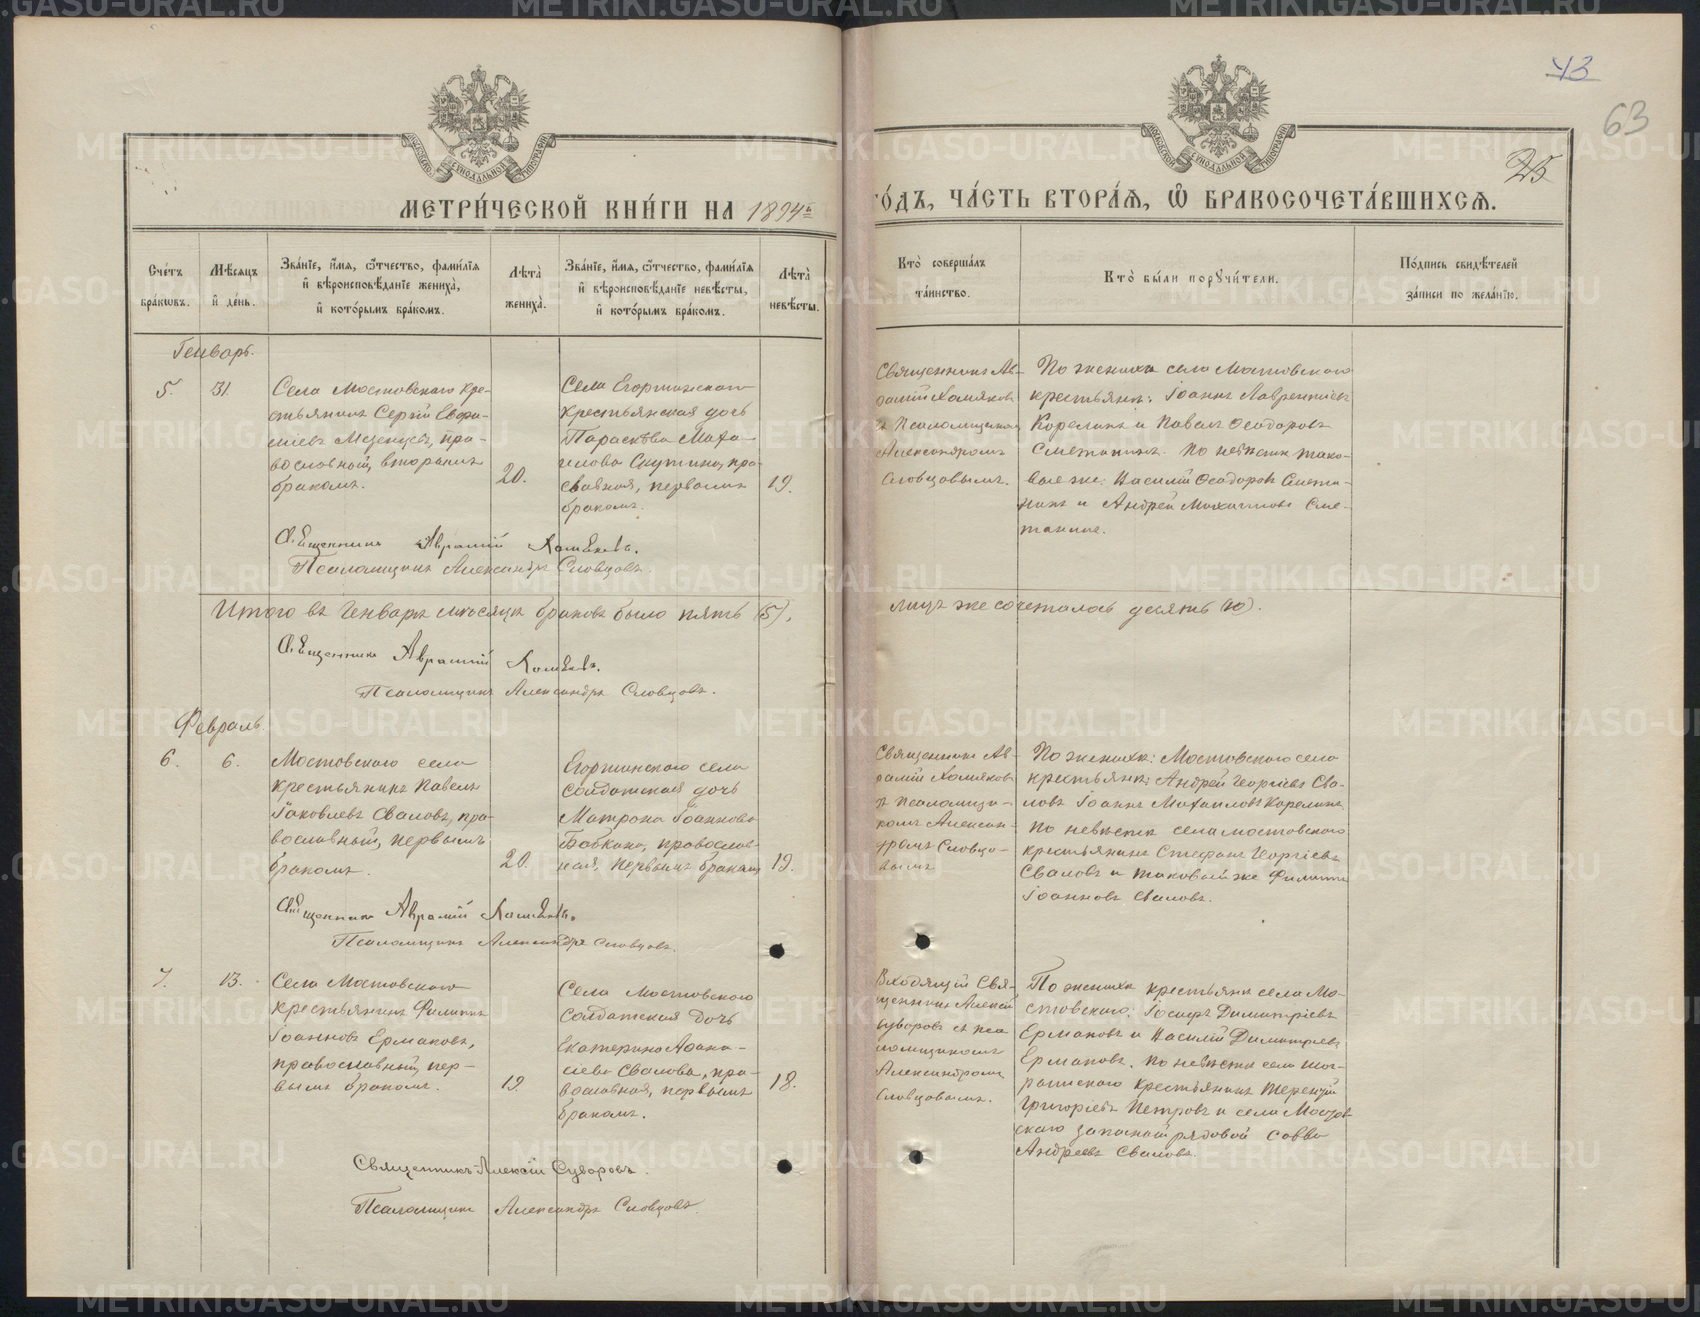 МЕТРИ́ЧЕСКОЙ КНИ́ГИ НА 1894 ГО́ДЪ, ЧА́СТЬ ВТОРА́Ѧ, Ѡ҆ БРАКОСОЧЕТА́ВШИХСѦ.
43
63
25
Сче́тъ бра́кѡвъ.
Мѣ́сѧцъ и҆ де́нь.
Зва́нїе, и҆́мѧ, ѻ҆́тчество, фами́лїѧ и҆ вѣроисповѣ́данїе жениха̀, и҆ кото́рымъ бра́комъ.
Лѣта̀ жениха̀.
Зва́нїе, и҆́мѧ, ѻ҆́тчество, фами́лїѧ и҆ вѣроисповѣ́данїе невѣ́сты, и҆ кото́рымъ бра́комъ.
Лѣта̀ невѣ́сты.
Кто̀ соверша́лъ та́инство.
Кто̀ бы́ли порꙋчи́тели.
По́дпись свидѣ́телей за́писи по жела́нїю.
Генварь.
5.
31.
Села Мостовскаго кре-
стьянинъ Сергій Евфи-
міевъ Мезенцевъ, пра-
вославный, вторымъ
бракомъ.
20.
Села Егоршинскаго
крестьянская дочь
Параскева Миха-
илова Скутина, пра-
славная, первымъ
бракомъ.
19.
Священникъ Ав-
рамій Холмяковъ
съ Псаломщикомъ
Александромъ
Словцовымъ.
По жениху села Мостовскаго
крестьяне: Іоаннъ Лаврентіевъ
Корелинъ и Павелъ Ѳеодоровъ
Сметанинъ. По невѣсте тако-
вые же: Василій Ѳеодоровъ Смета-
нинъ и Андрей Михаиловъ Сме-
танинъ.
Священникъ Аврамій Холмяковъ.
Псаломщикъ Александръ Словцовъ.
Итого въ Генварѣ мѣсяцѣ браковъ было пять (5),
лицъ же сочеталось десять (10).
Священникъ Аврамій Холмяковъ.
Псаломщикъ Александръ Словцовъ.
Февраль.
6.
6.
Мостовскаго села
крестьянинъ Павелъ
Іаковлевъ Сваловъ, пра-
вославный, первымъ
бракомъ.
20.
Егоршинскаго села
солдатская дочь
Матрона Іоаннова
Бабкина, православ-
ная, первымъ бракомъ
19.
Священникъ Ав-
рамій Холмяковъ
съ псаломщи-
комъ Алексан-
дромъ Словцо-
вымъ
По жениху: Мостовскаго села
крестьяне: Андрей Георгіевъ Сва-
ловъ Іоаннъ Михаиловъ Корелинъ
по невѣсте села мостовского
крестьянинъ Стефанъ Георгіевъ
Сваловъ и таковый же Филиппъ
Іоанновъ Сваловъ.
Священникъ Аврамій Холмяковъ.
Псаломщикъ Александръ Словцовъ.
7.
13.
Села Мостовскаго
крестьянинъ Филиппъ
Іоанновъ Ермаковъ,
православный, пер-
вымъ бракомъ.
19
Села Мостовскаго
Солдатская дочь
Екатерина Афана-
сіева Свалова, пра-
вославная, первымъ
бракомъ.
18.
Входящій Свя-
щенникъ Алексій
Суворовъ съ пса
ломщикомъ
Александромъ
Словцовымъ.
По жениху крестьяне села Мо-
стовскаго: Іосифъ Димитріевъ
Ермаковъ и Василій Димитріевъ
Ермаковъ. По невѣсте села Шог-
ринскаго крестьянинъ Терентій
Григоріевъ Петровъ и села Мостов-
скаго запасный рядовой Савва
Андреевъ Сваловъ.
Священникъ Алексій Суворовъ.
Псаломщикъ Александръ Словцовъ